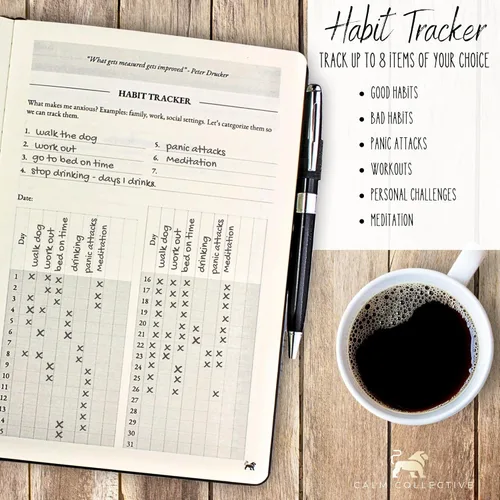 Habit Tracker
TRACK UP TO 8 ITEMS OF YOUR CHOICE
• GOOD HABITS
• BAD HABITS
• PANIC ATTACKS
• WORKOUTS
• PERSONAL CHALLENGES
• MEDITATION
"What gets measured gets improved" - Peter Drucker
HABIT TRACKER
What makes me anxious? Examples: family, work, social settings. Let's categorize them so
we can track them.
1. walk the dog
2. work out
3. go to bed on time
4. stop drinking - days I drinks.
5. panic attacks
6. Meditation
7.
Date:
Day walk dog work out bed on time drinking panic attacks meditation
1 x x x
2 x x x x
3 x x x
4 x x x
5 x x
6 x
7 x
8 x x x
9 x
10 x x
11 x x
12 x
13 x
4 x x
5 x
Day walk dog work out bed on time drinking panic attacks meditation
16 x x x
17 x x x x
18 x x x x
19 x x x x
20 x x x x
21 x x x x
22 x x x
23 x x x
24 x x x
25 x
26 x x
27
28
29
30
31
CALM COLLECTIVE